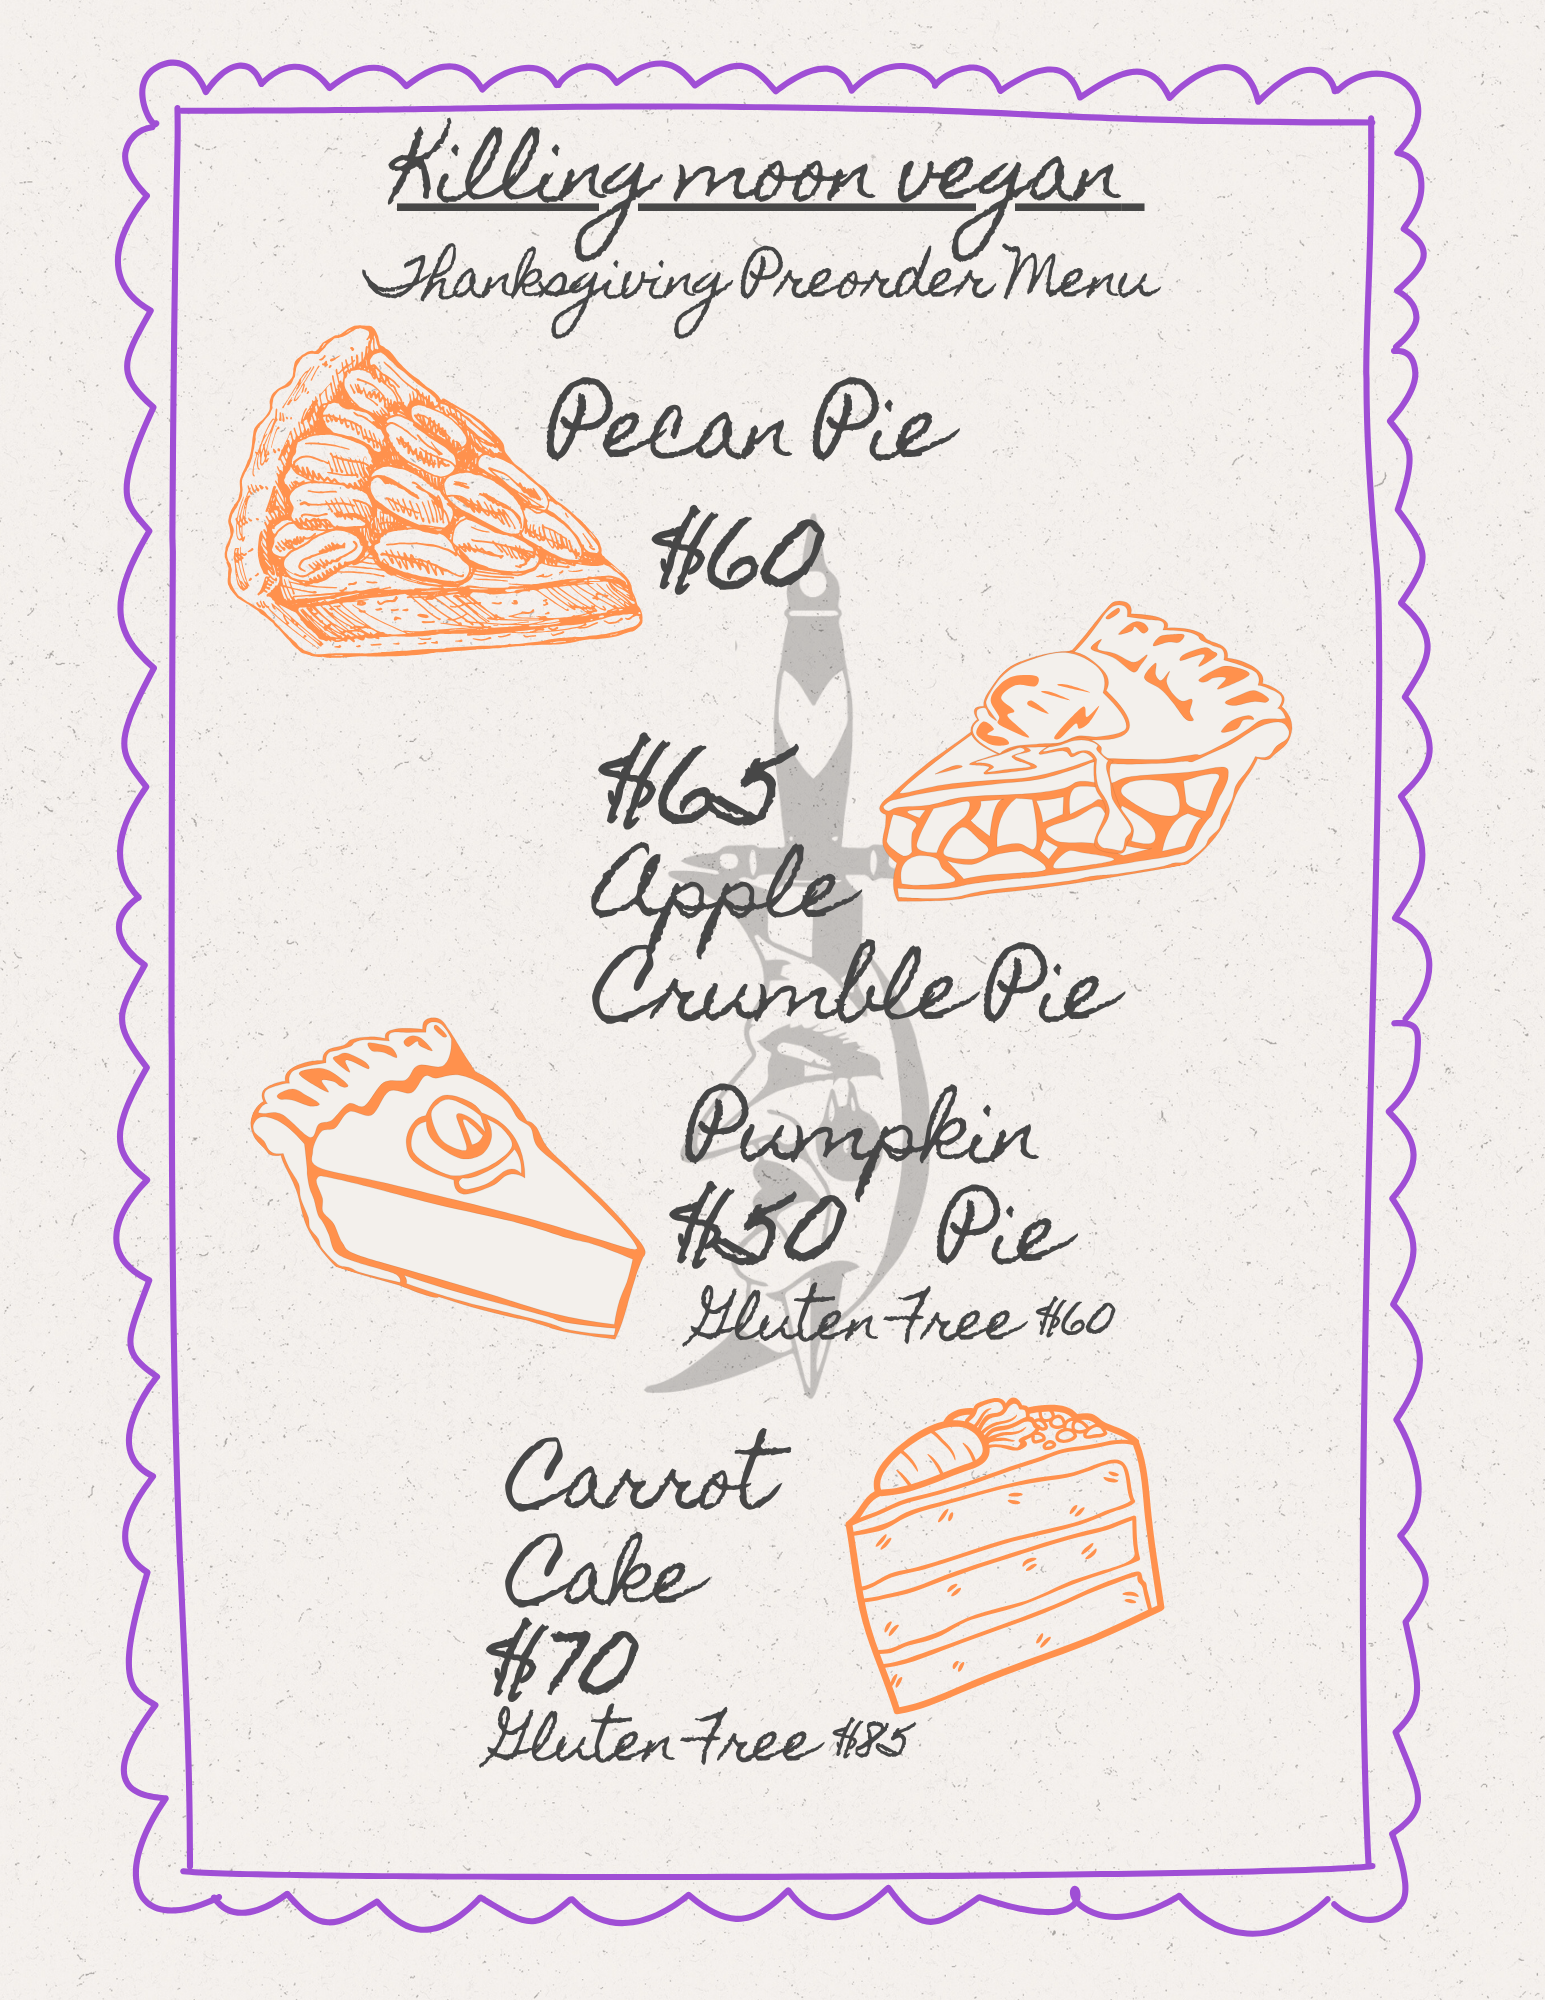 Killing moon vegan
Thanksgiving Preorder Menu
Pecan Pie
$60
$65
Apple
Crumble Pie
Pumpkin
$50 Pie
Gluten-Free $60
Carrot
Cake
$70
Gluten-Free $85